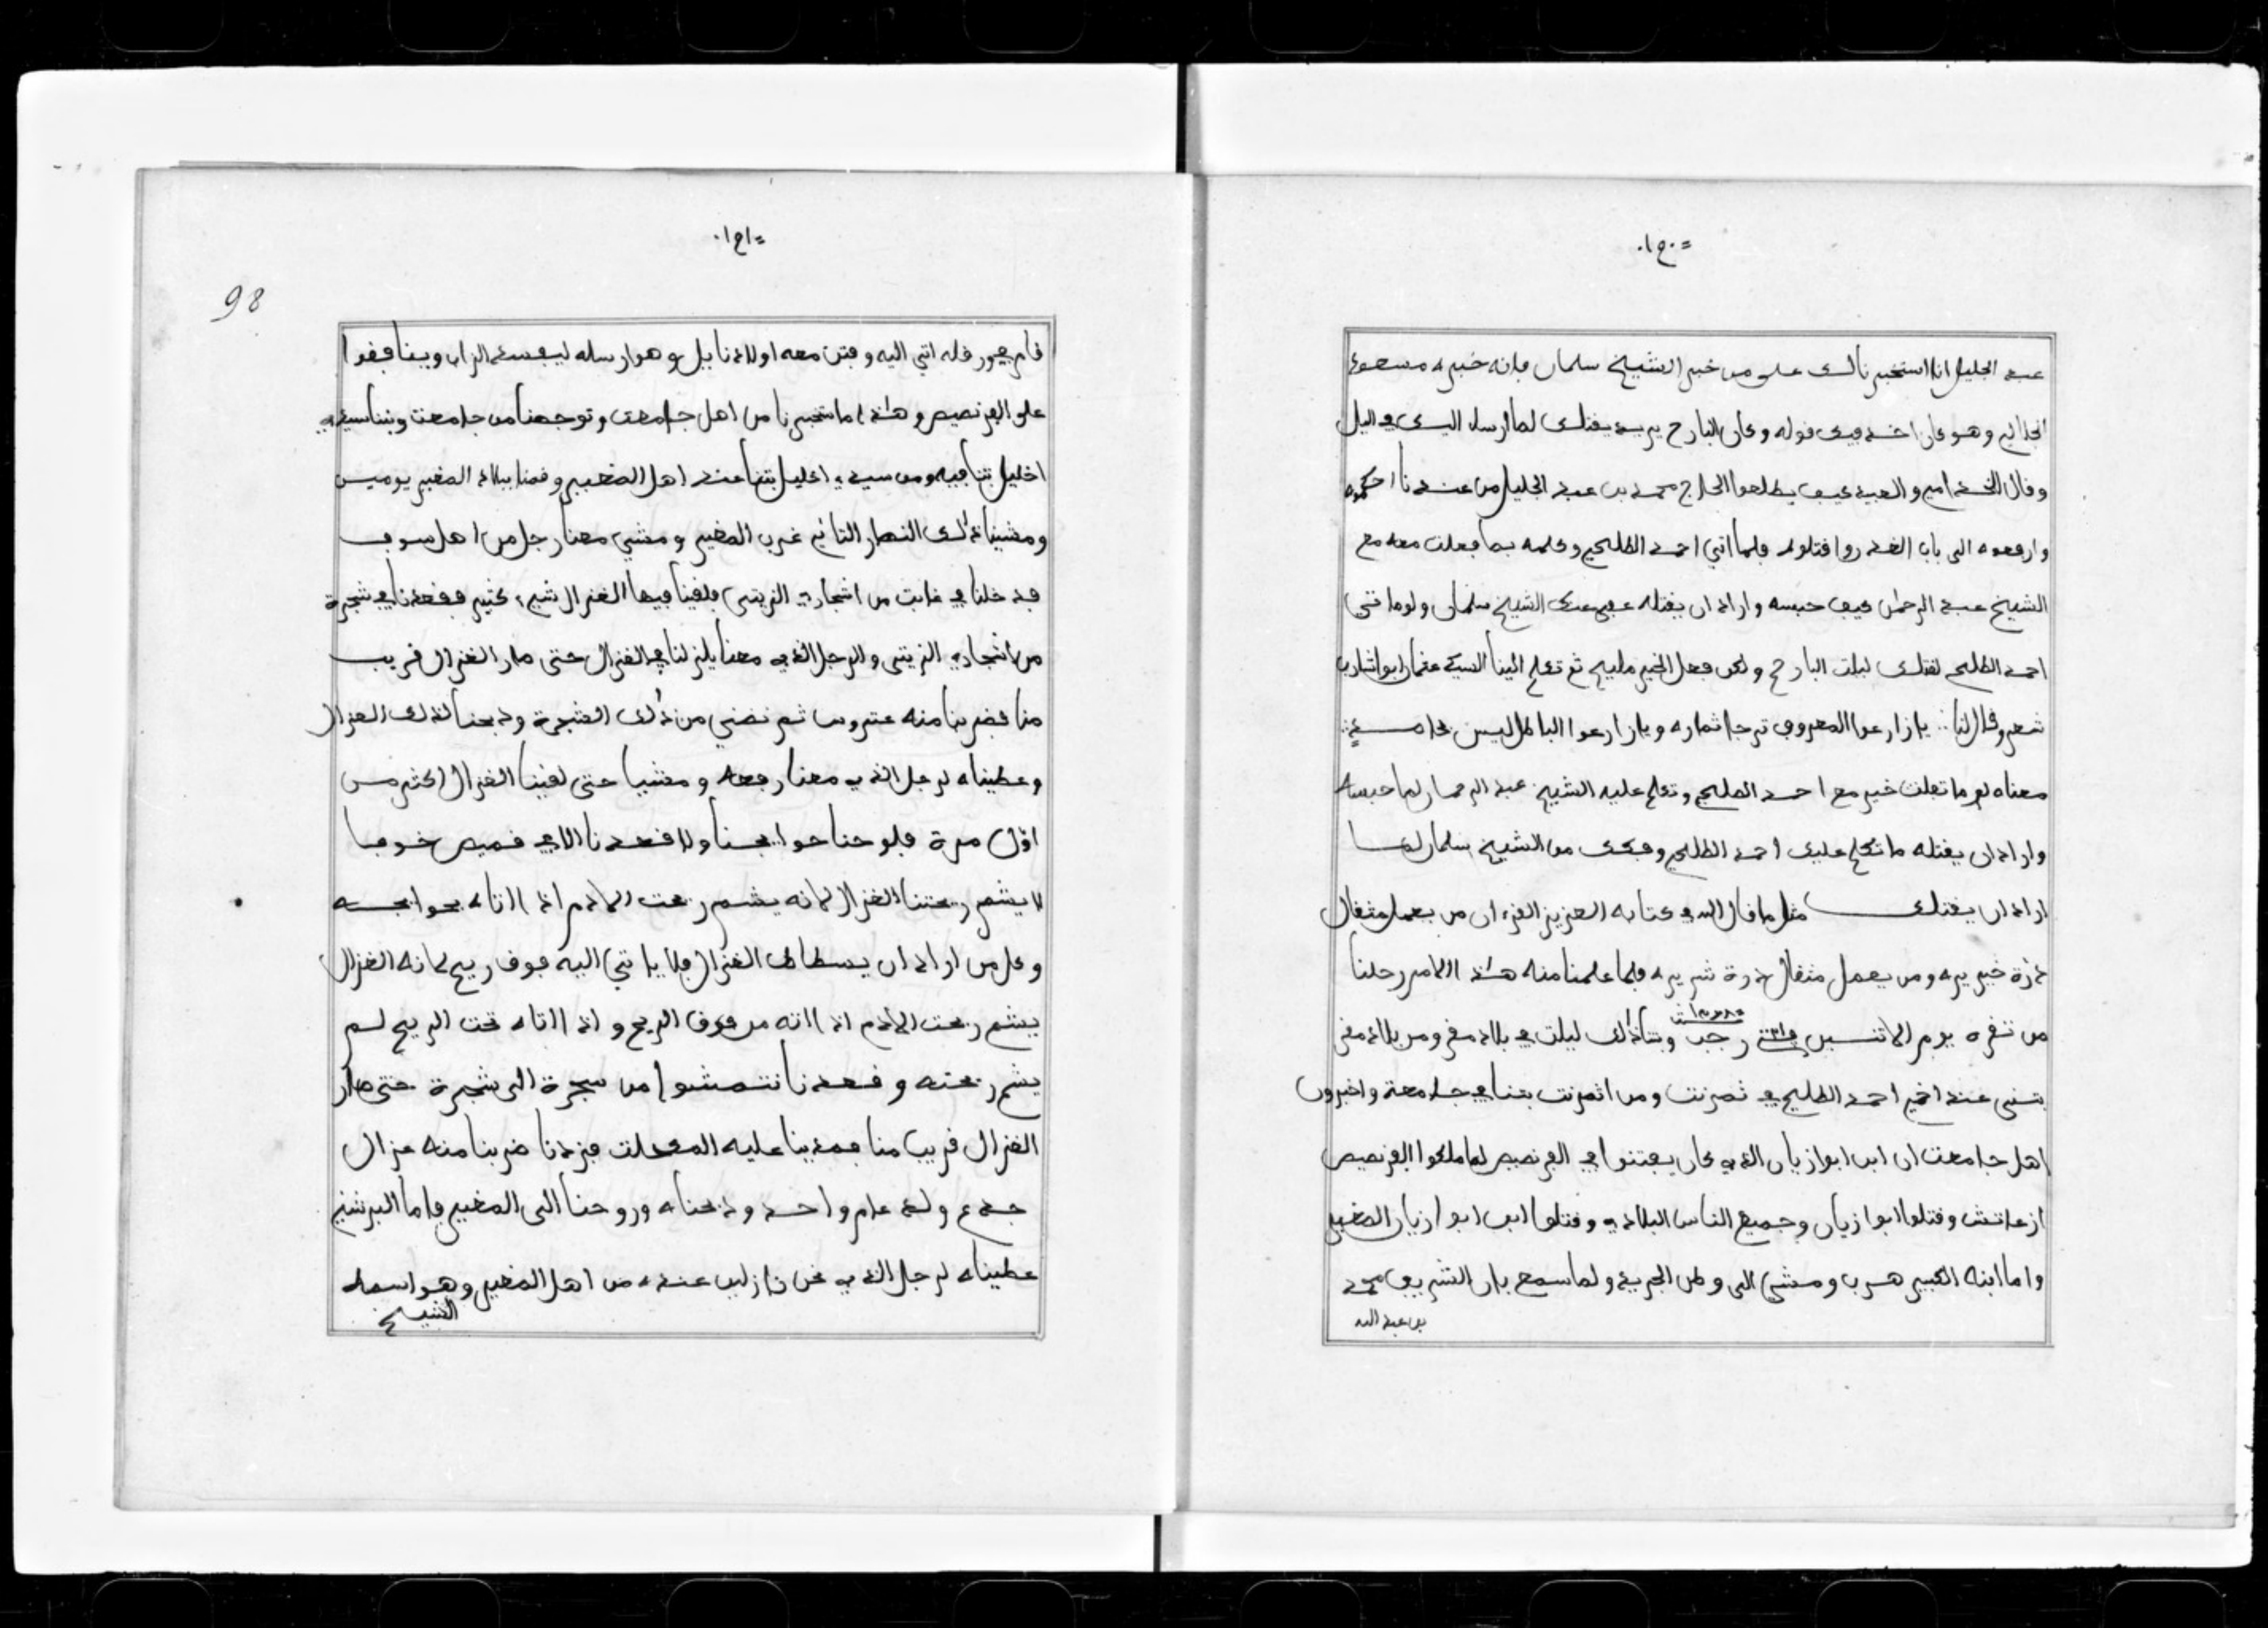 =١٥٠٠
عبد الجليل انا استخبرنا لك على من خبر الشيخ سلمان فإنه خبره مسعود
وهو كان اخد فيك قوله وكان البارح يريد يقتلك لما ارسل اليك في اليل
وقال للخدامين والعبيد كيف يطلعوا الحاج محمد بن عبد الجليل من عندنا احكموه
وارفعوه الى باب الغدر واقتلوه فلما اتى احمد الطليحي وكلمه بما فعلت معه مع
الشيخ عبد الرحمان كيف حبسه واراد ان يقتله عفى عنك الشيخ سلمان ولو ما اتى
احمد الطليحي لقتلك ليلت البارح ولكن فعل الخير مليح ثم تكلم الينا السيد عثمان ابو اشارب
شعر وقال لنا ∴ يا زارعوا المعروف ترجا ثماره ويا زارعوا الباطل ليس
معناه لو ما فعلت خير مع احمد الطليحي وتكلم عليه الشيخ عبد الرحمان لما حبسه
واراد ان يقتله ما تكلم عليك احمد الطليحي وفكك من الشيخ سلمان لما
اراد ان يقتلك مثل ما قال الله في كتابه العزيز القرءان من يعمل مثقال
ذرة خير يره ومن يعمل مثقال ذرة شر يره فلما علمنا منه هذا الامر رحلنا
من تقره يوم الاثنين رجب وبتنا ذلك ليلت في بلاد مقر ومن بلاد مقر
بتنى عند اخير احمد الطليحي في ثمرنت ومن اثمرنت بتنا في جامعة واخبرون
اهل جامعت ان ابن ابوازيان الذي كان يفتنوا في الفرنصيص لما ملكوا الفرنصيص
ازعاتش وقتلوا ابوازيان وجميع الناس البلادي وقتلوا ابن ابوازيان الصغير
واما ابنه الكبير هرب ومشى الى وطن الجريد ولما سمع بان الشريف محمد
بن عبد الله
=١٥١٠
98
قام يجور قله اتى اليه وفتن معه اولاد نايل وهو ارسله ليفسد الزاب وينافقوا
على الفرنصيص وهذا ما استخبرنا من اهل جامعت وتوجهنا من جامعت وبتنا سيدي
اخليل بتنا فيه ومن سيدي اخليل بتنا عند اهل المغيير وقمنا ببلاد المغير يومين
ومشينا ذلك النهار الثاني غرب المغير ومشى معنا رجل من اهل سوف
فدخلنا في غابت من اشجاري الزيتى فلقينا فيها الغزال شيء كثير فقعدنا في شجرة
من اشجاري الزيتى والرجل الذي معنا يلز لنا في الغزال حتى صار الغزال قريب
منا فضربنا منه عتروس ثم نضنى من ذلك الشجرة وذبحنا لذلك الغزال
وعطيناه لرجل الذي معنا رفعه ومشينا حتى لقينا الغزال اكثر من
اوّل مرة فلوحنا حوايجنا ولا قعدنا الا في قميص خوفا
لا يشم ريحتنا الغزال لانه يشم ريحت الادم اذا اتاه بحوايجه
وكل من اراد ان يسطاط الغزال فلا ياتي اليه فوق ريح لانه الغزال
يشم ريحت الادم اذا اته من فوق الريح واذا اتاه تحت الريح لم
يشم ريحته وقعدنا نتمشوا من سجرة الى شجرة حتى صار
الغزال قريب منا فمدينا عليه المكحلت فزدنا ضربنا منه غزال
جدع ولد عام واحد وذبحناه وروحنا الى المغير فاما البرشني
عطيناه لرجل الذي نحن نازلين عنده من اهل المغير وهو اسمه
الشيخ